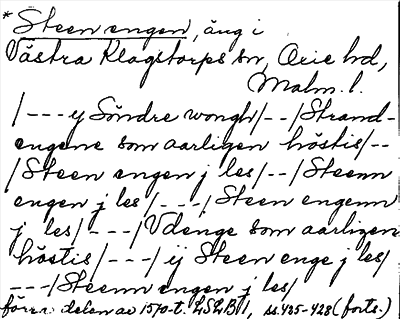 * Steen engen, äng i
Västra Klagstorps sn, Oxie hd,
Malm. l.
/---ij Söndre wongh/--/Strand-
engene som aarligen höstis/--
/Steen engen j les/--/Steenn
engen j les/---/Steen engenn
j les/---/Vdenge som aarligen
höstis/---/ij Steen enge j les/
---/Steenn engen j les/
förra delen av 1570-t. LSLB 1, ss. 425-428 (forts.)